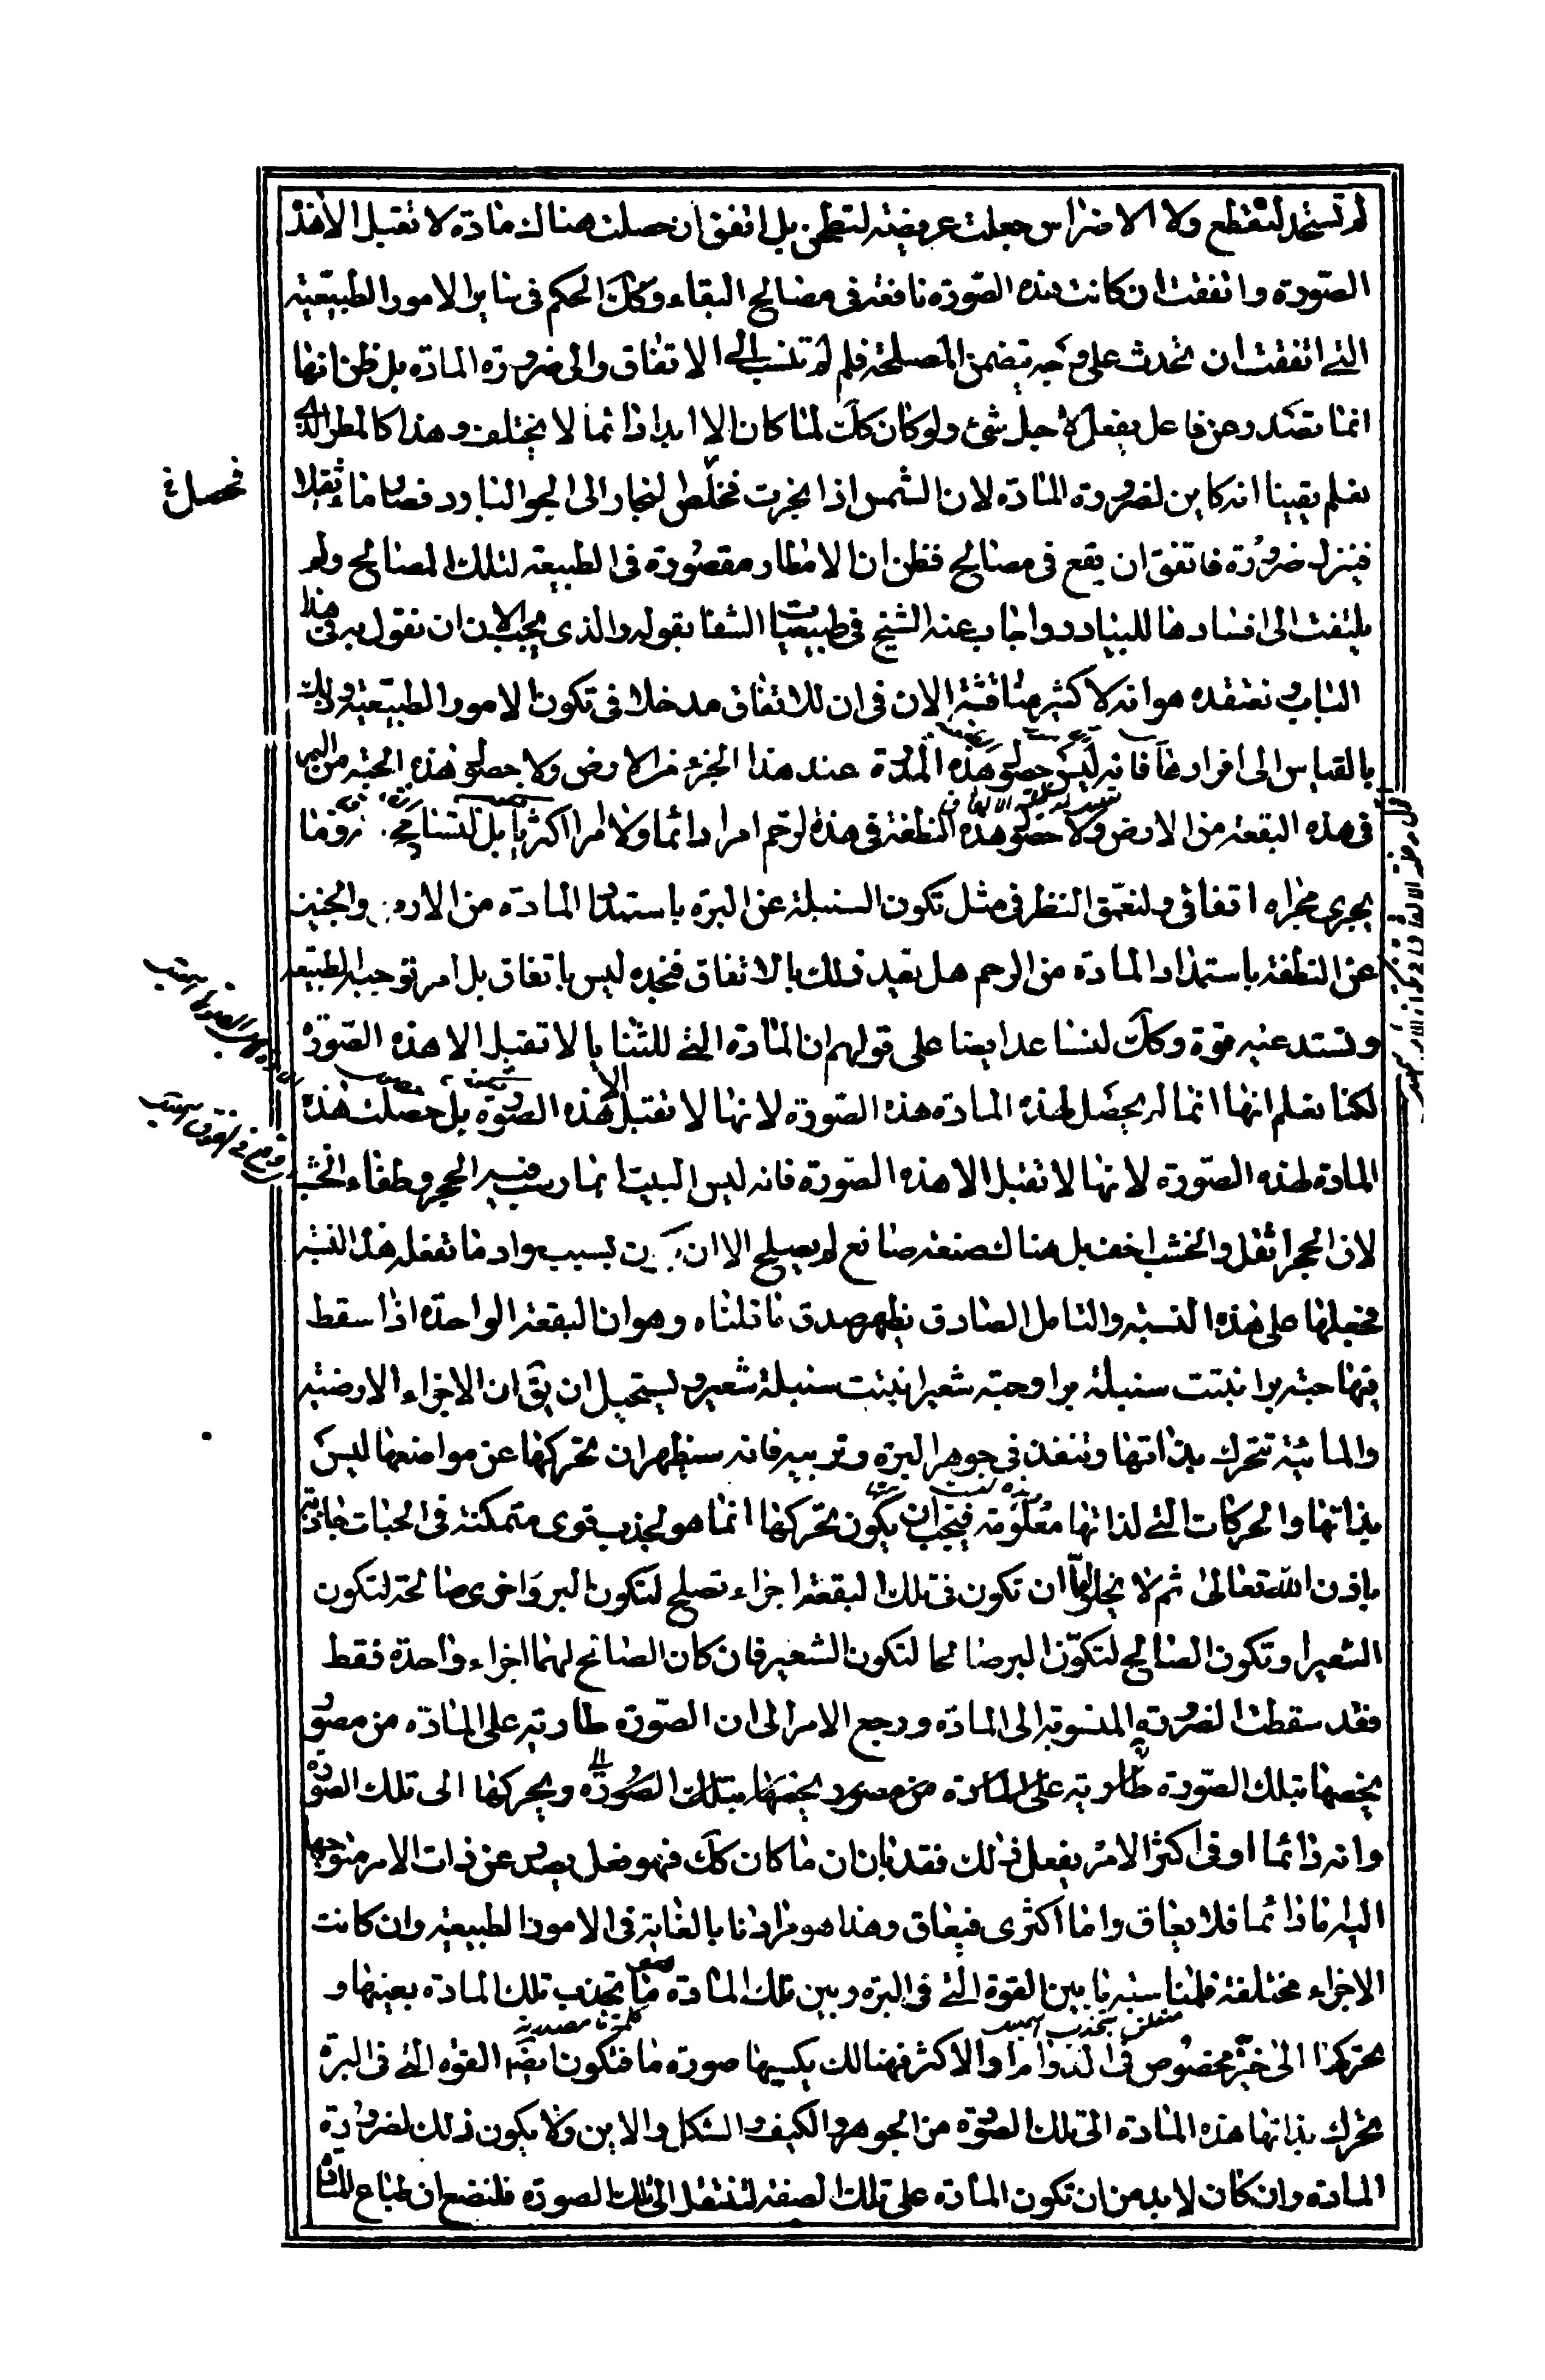 لم تستحد لتقطع ولا الاضراس جعلت عريضة لتطحن بل اتفق ان حصلت هناك مادة لا تقبل الا هذه
الصورة واتفقت ان كانت هذه الصورة نافعة فى مصالح البقاء وكك الحكم فى سایر الامور الطبيعية
التى اتفقت ان تحدث على وجه يتضمن المصلحة فلم لم تنسب الى الاتفاق والى ضرورة المادة بل ظن انها
انما تصدر عن فاعل يفعل لاجل شئ ولو كان كك لما كان الا ابدا دائما لا يختلف وهذا كالمطر الذى
نعلم يقينا انه كاين لضرورة المادة لان الشمس اذا بخرت فخلص البخار الى الجو البارد فصار ماء ثقيلا
فينزل ضرورة فاتفق ان يقع فى مصالح فظن ان الامطار مقصودة فى الطبيعة لتلك المصالح ولم
يلتفت الى افسادها للبيادر واجاب عنه الشيخ فى طبيعيات الشفا بقوله والذى يجب الان ان نقول به فى هذا
الباب و نعتقده هو انه لا كثير مناقشة الان فى ان للاتفاق مدخلا فى تكون الامور الطبيعية وذلك
بالقياس الى افرادها فانه ليس حصول هذه المدرة عند هذا الجزء من الارض ولا حصول هذه الحبة من البر
فى هذه البقعة من الارض ولا حصول هذه النطفة فى هذه الرحم امرا دائما ولا امرا اكثريا بل لنتسامح وما
يجرى مجراه اتفاقى ولنعمق النظر فى مثل تكون السنبلة عن البرة باستمداد المادة من الارض والجنين
عن النطفة باستمداد المادة من الرحم هل يعد ذلك بالاتفاق فنجده ليس باتفاق بل امر توجبه الطبيعة
وتستدعيه قوة وكك لنساعد ايضا على قولهم ان المادة التى للثنايا لا تقبل الا هذه الصورة
لكنا نعلم انها انما لم يحصل لهذه المادة هذه الصورة لانها لا تقبل الا هذه الصورة بل حصلت هذه
المادة لهذه الصورة لانها لا تقبل الا هذه الصورة فانه ليس البيت انما رسب فيه الحجر وطفاء الخشب
لان الحجر اثقل والخشب اخف بل هناك صنعة صانع لم يصلح الا ان تكون نسب مواد ما تفعله هذه النسبة
فجعلها على هذه النسبة والتامل الصادق يظهر صدق ما قلناه وهو ان البقعة الواحدة اذا سقط
فيها حبة برا نبتت سنبلة برا وحبة شعير انبتت سنبلة شعير ويستحيل ان يق ان الاجزاء الارضية
والمائية تتحرك بذاتها وتنفذ فى جوهر البرة وتربيه فانه سيظهر ان تحركها عن مواضعها ليس
بذاتها والحركات التى لذاتها معلومة فيجب ان يكون تحركها انما هو لجذب قوى متمكنة فى الحبات جاذبة
باذن الله تعالى ثم لا يخلو اما ان تكون فى تلك البقعة اجزاء تصلح لتكون البر واخرى صالحة لتكون
الشعير او تكون الصالح لتكون البر صالحا لتكون الشعير فان كان الصالح لهما اجزاء واحدة فقط
فقد سقطت الضرورة المنسوبة الى المادة ورجع الامر الى ان الصورة طارية على المادة من مصور
يخصها بتلك الصورة طارية على المادة من مصور يخصها بتلك الصورة ويحركها الى تلك الصورة
وانه دائما او فى اكثر الامر يفعل ذلك فقد بان ان ما كان كك فهو فعل يصدر عن ذات الامر متوجها
اليه فاما دائما فلا يعاق واما اكثرى فيعاق وهذا هو مرادنا بالغاية فى الامور الطبيعية وان كانت
الاجزاء مختلفة فلمناسبة ما بين القوة التى فى البرة وبين تلك المادة ما تجذب تلك المادة بعينها و
تحركها الى حيز مخصوص فى الدوام او الاكثر فهنالك يكسيها صورة ما فتكون ايضا القوة التى فى البرة
تحرك بذاتها هذه المادة الى تلك الصورة من الجوهر والكيف والشكل والاين ولا يكون ذلك لضرورة
المادة وان كان لا بد من ان تكون المادة على تلك الصفة لتنتقل الى تلك الصورة فلنضع ان طباع المادة